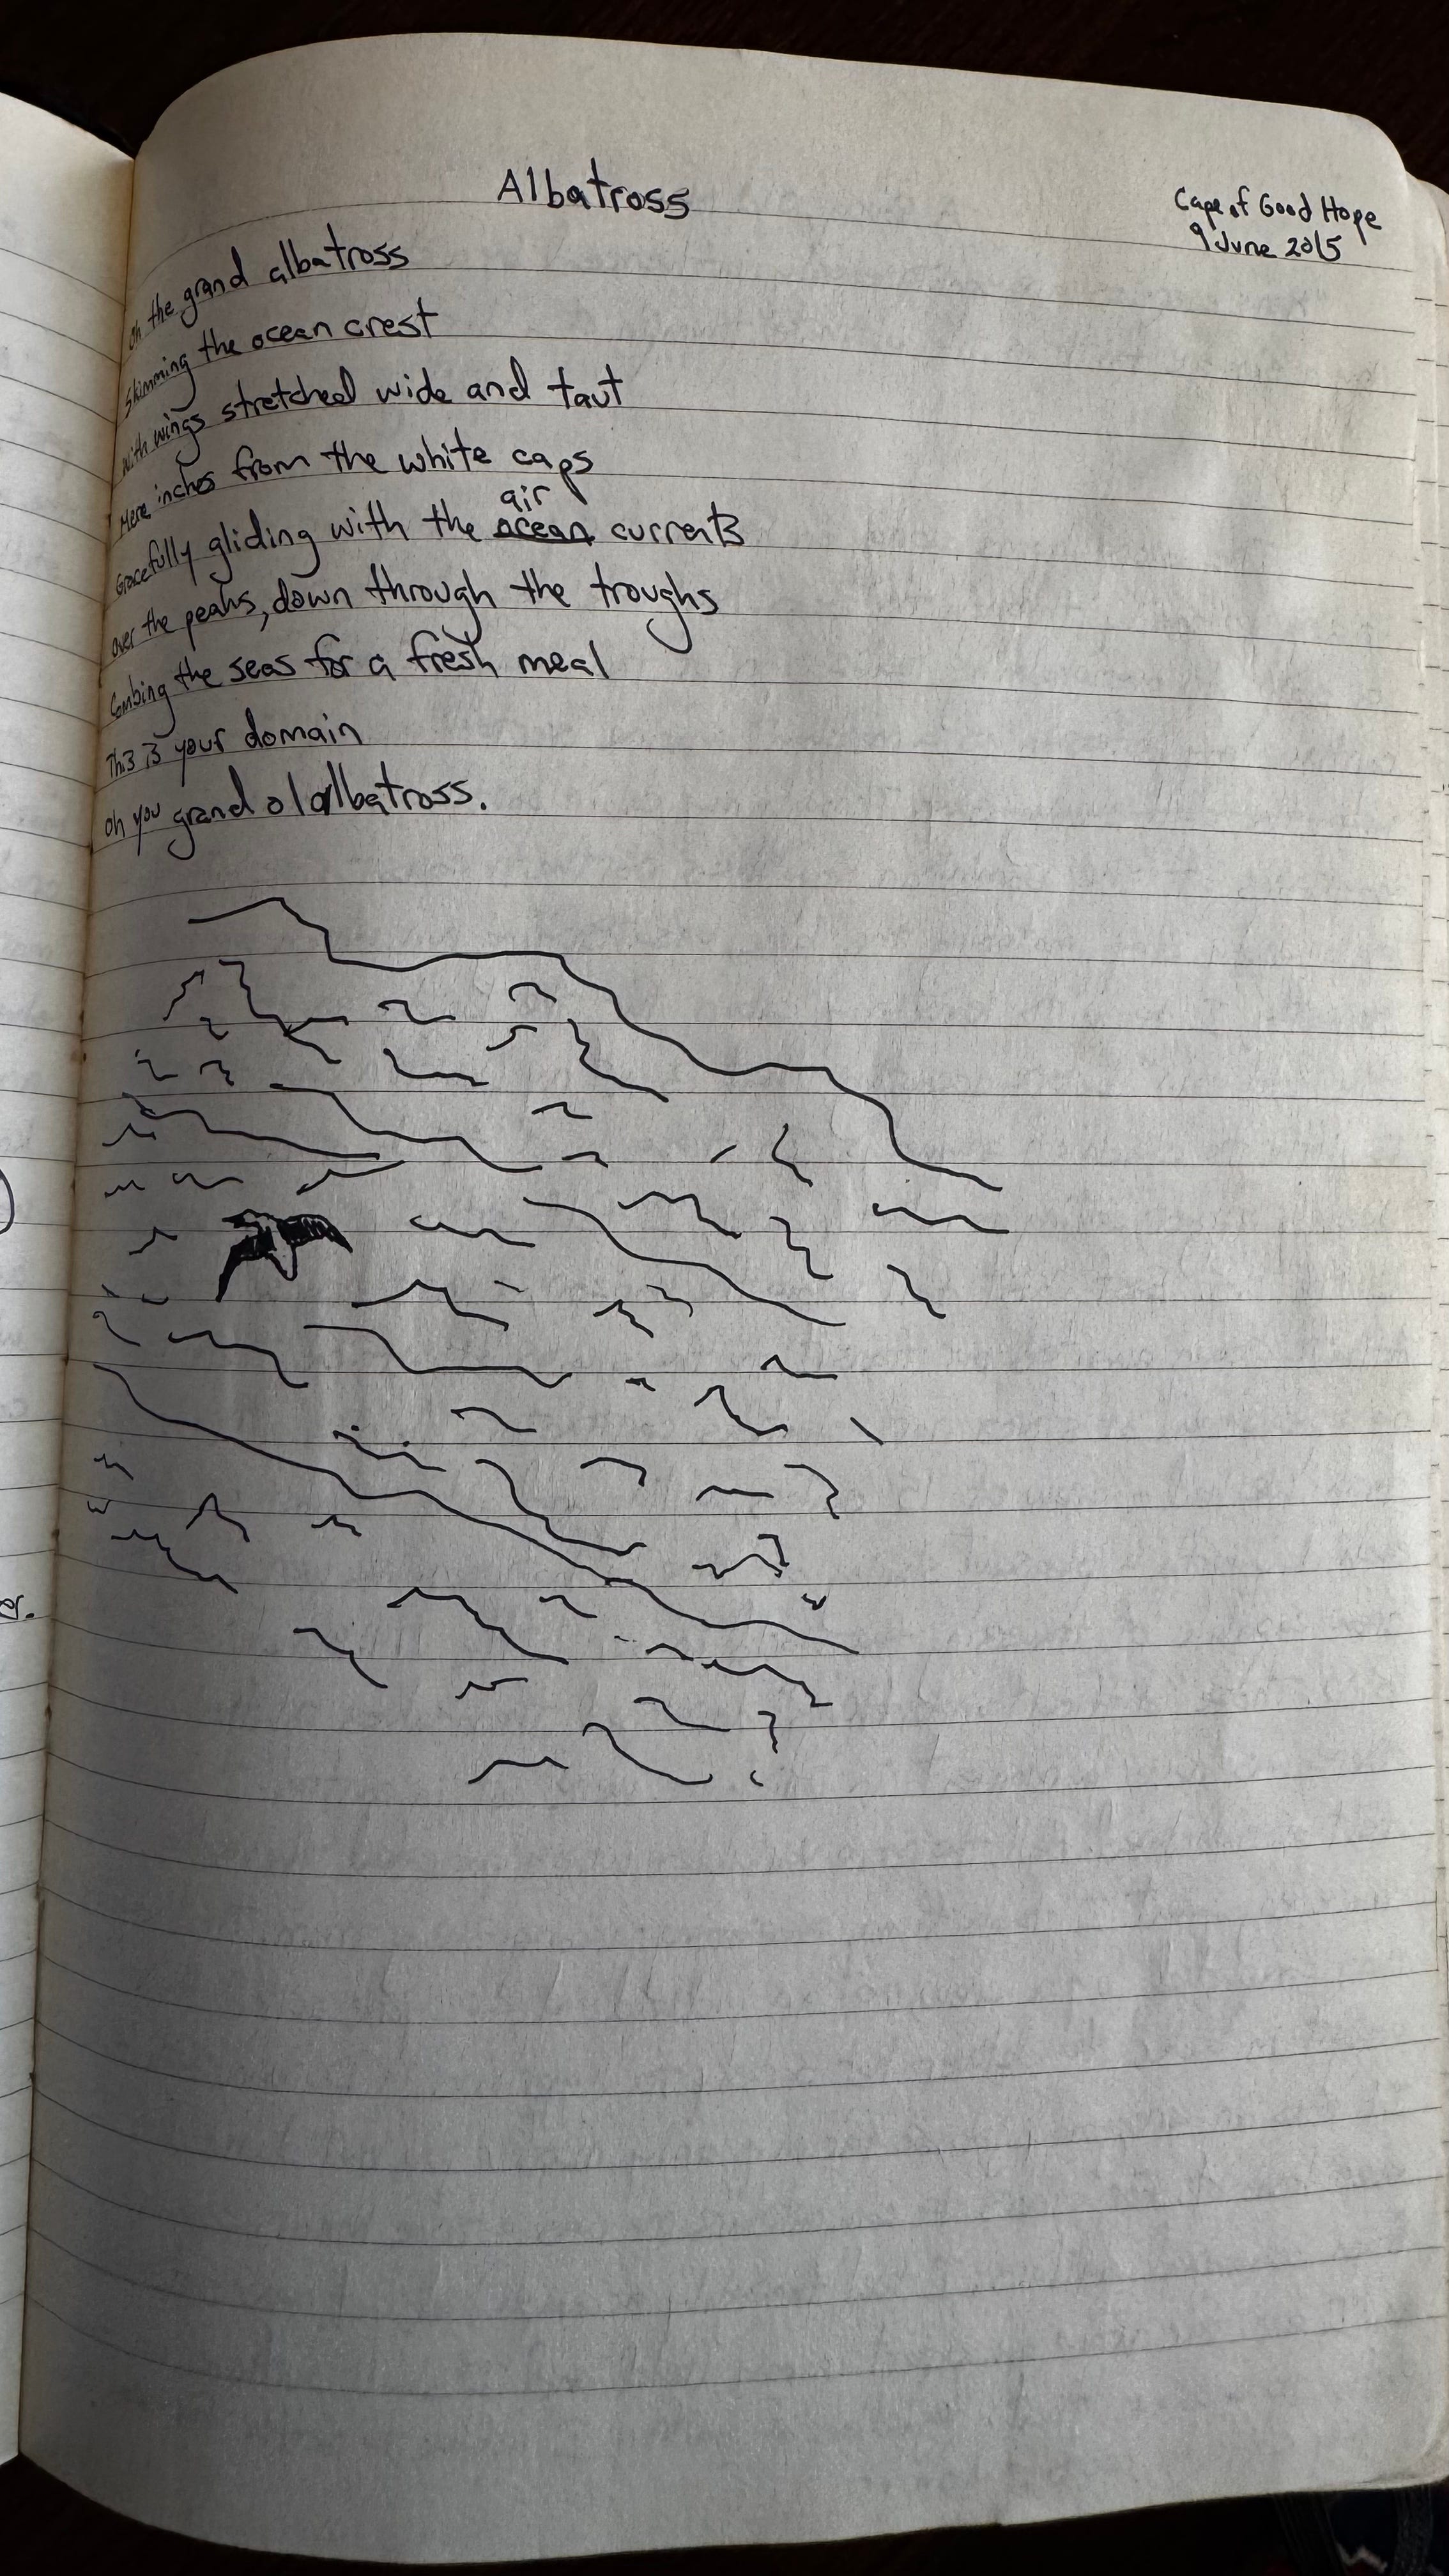 Albatross
Cape of Good Hope
9 June 2015
Oh the grand albatross
Skimming the ocean crest
with wings stretched wide and taut
Mere inches from the white caps
air
Gracefully gliding with the ocean currents
over the peaks, down through the troughs
Combing the seas for a fresh meal
This is your domain
Oh you grand ol albatross.